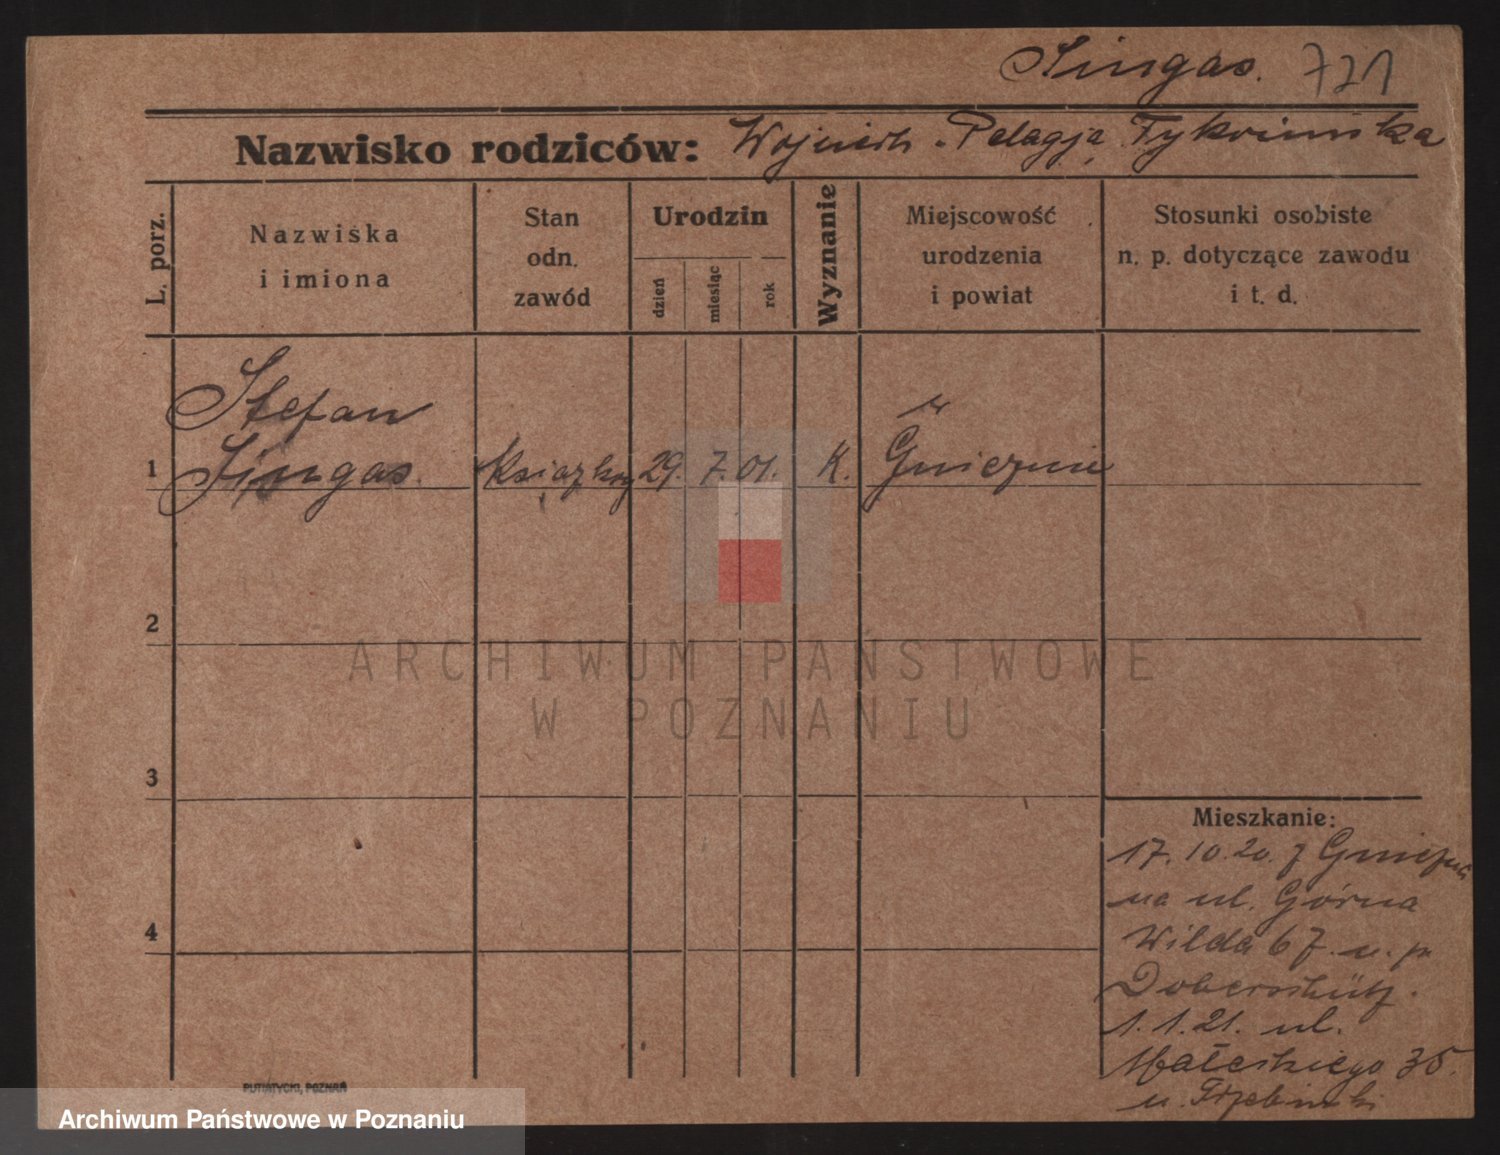 Singas. 721
Nazwisko rodziców: Wojciech - Pelagja
L. porz.
Nazwiska
i imiona
Stan
odn.
zawód
Urodzin
dzień
miesiąc
rok
Wyznanie
Miejscowość
urodzenia
i powiat
Stosunki osobiste
n. p. dotyczące zawodu
i t. d.
Stefan
w
1 Singas. 29. 7. 01. K. Gnieznie
2
3
4
Mieszkanie:
17. 10. 20. z Gniezna
na ul. Górna
Wilda 67. u. p.
Doberschütz.
1. 1. 21. ul.
Małeckiego 35.
u.
PUTIATYCKI, POZNAŃ
ARCHIWUM PAŃSTWOWE
W POZNANIU
Archiwum Państwowe w Poznaniu